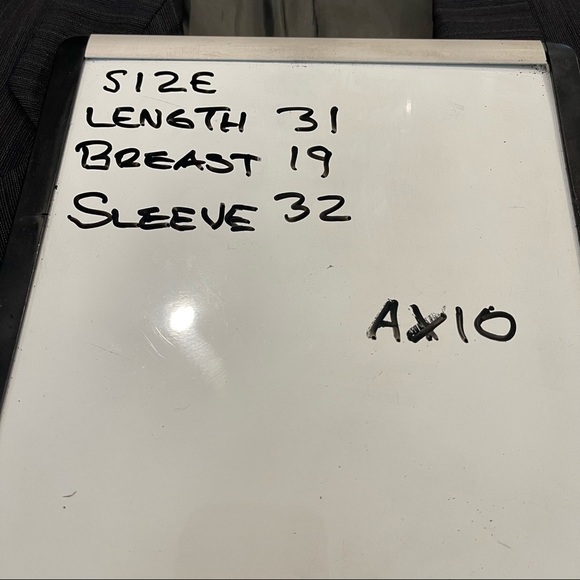 SIZE
LENGTH 31
BREAST 19
SLEEVE 32
AX10